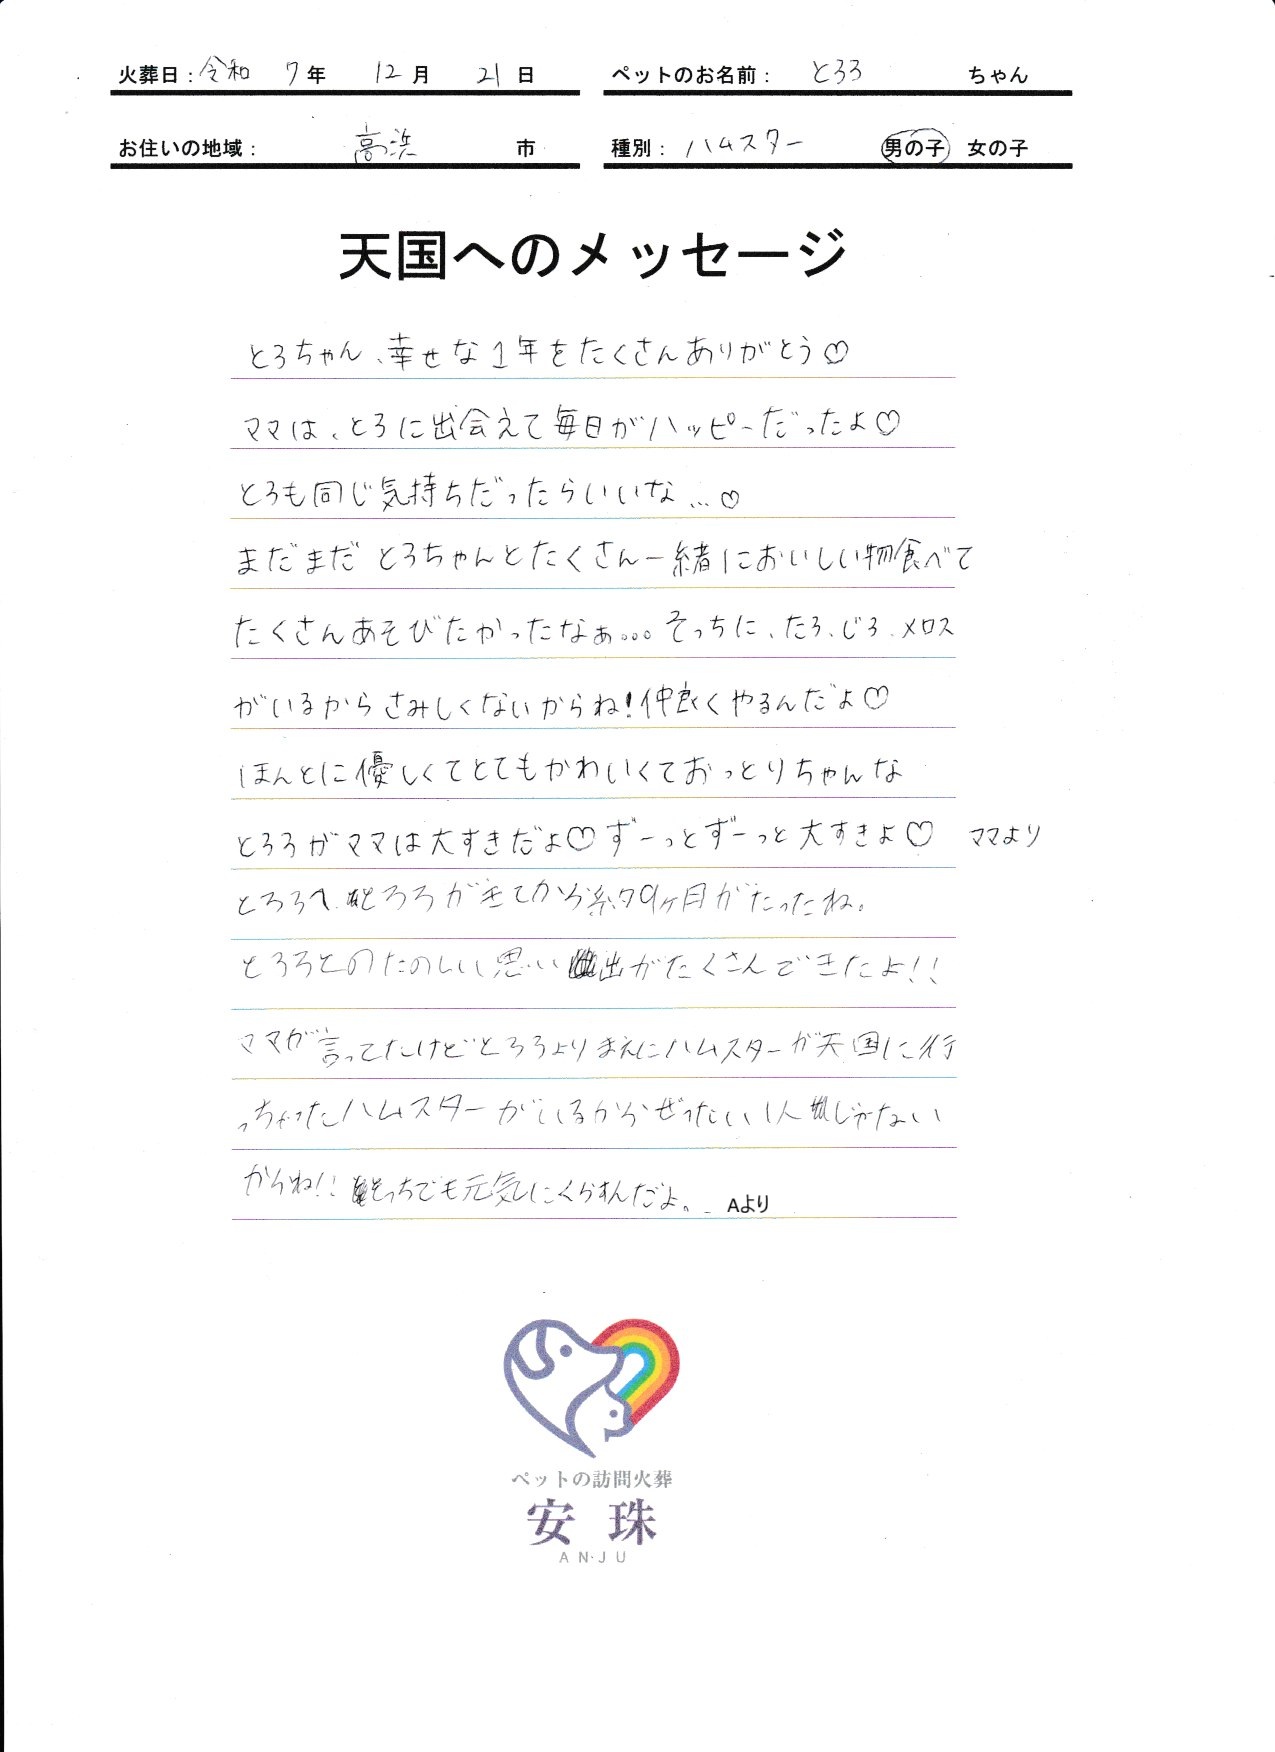 火葬日：令和 7年 12月 21日
ペットのお名前： とろろ ちゃん
お住いの地域： 高浜 市
種別： ハムスター 男の子 女の子
天国へのメッセージ
とろちゃん、幸せな1年をたくさんありがとう♡
ママは、とろに出会えて毎日がハッピーだったよ♡
とろも同じ気持ちだったらいいな…♡
まだまだとろちゃんとたくさん一緒においしい物食べて
たくさんあそびたかったなぁ。。。そっちに、たろ、じろ、メロス
がいるからさみしくないからね!仲良くやるんだよ♡
ほんとに優しくてとてもかわいくておっとりちゃんな
とろろがママは大すきだよ♡ずーっとずーっと大すきよ♡ ママより
とろろへ とろろがきてから約9ヶ月がたったね。
とろろとのたのしい思い出がたくさんできたよ!!
ママが言ってたけどとろろよりまえにハムスターが天国に行
っちゃったハムスターがいるからぜったい1人じゃない
からね!! そっちでも元気にくらすんだよ。 Aより
ペットの訪問火葬
安珠
ANJU